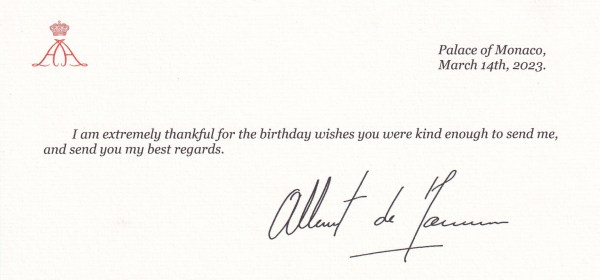 Palace of Monaco,
March 14th, 2023.
I am extremely thankful for the birthday wishes you were kind enough to send me,
and send you my best regards.
Albert de Monaco